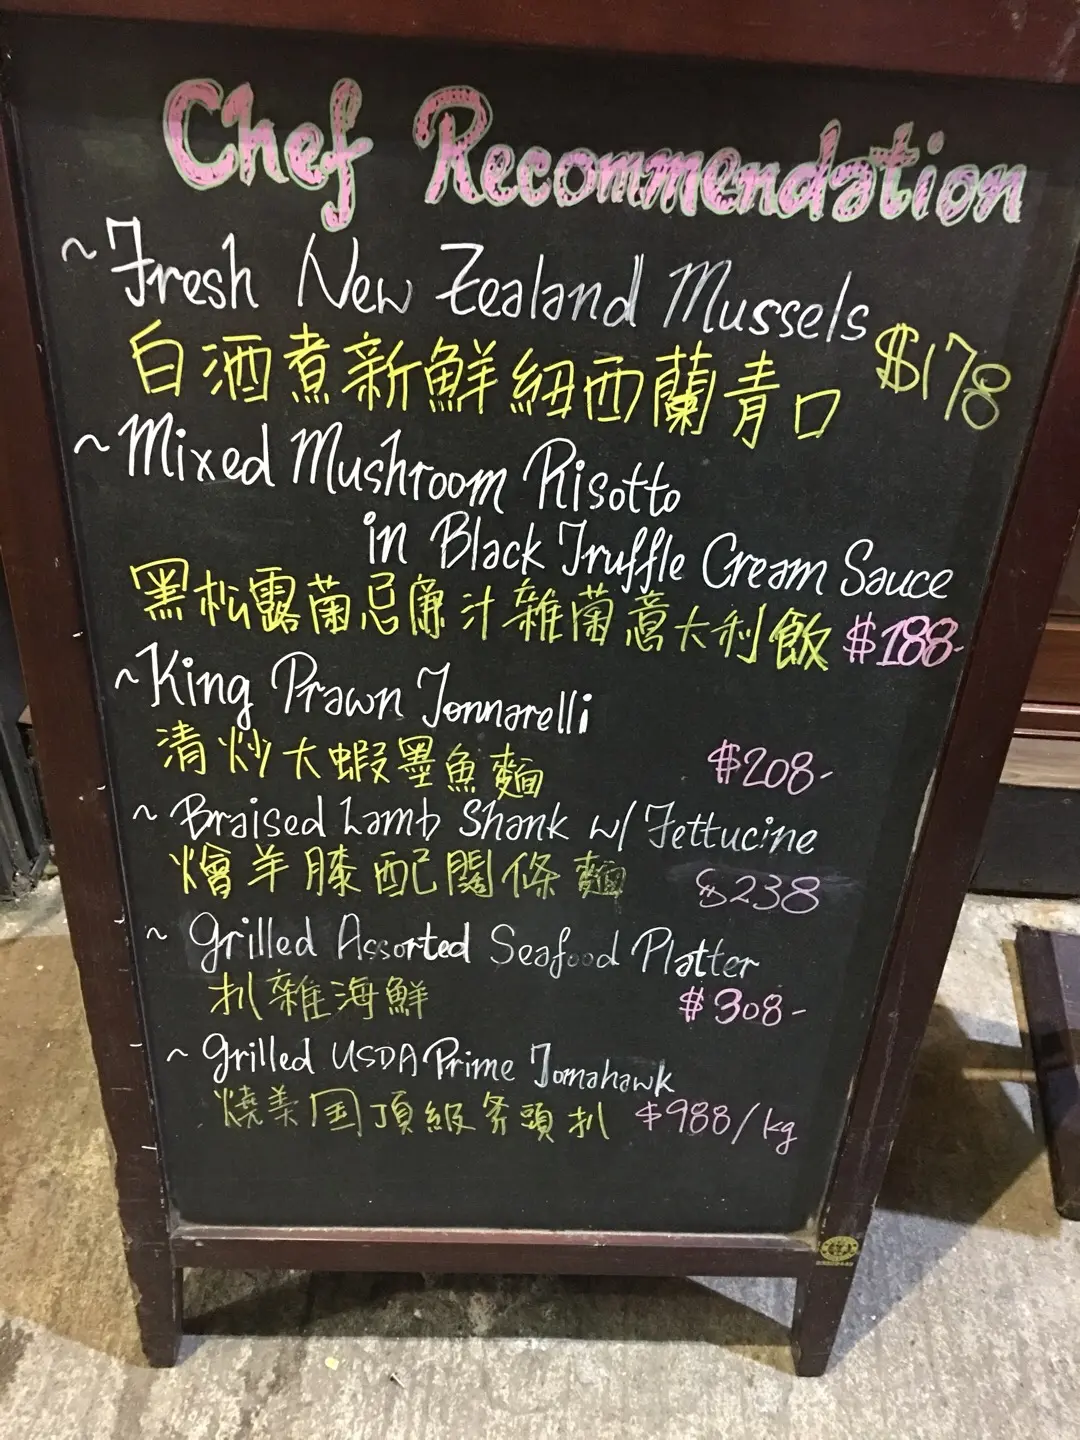 Chef Recommendation
~Fresh New Zealand Mussels
白酒煮新鮮紐西蘭青口 $178
~Mixed Mushroom Risotto
in Black Truffle Cream Sauce
黑松露菌忌廉汁雜菌意大利飯 $188-
~King Prawn Tonnarelli
清炒大蝦墨魚麵 $208-
~Braised Lamb Shank w/ Fettucine
燴羊膝配闊條麵 $238
~Grilled Assorted Seafood Platter
扒雜海鮮 $308-
~Grilled USDA Prime Tomahawk
燒美国頂級斧頭扒 $988/kg